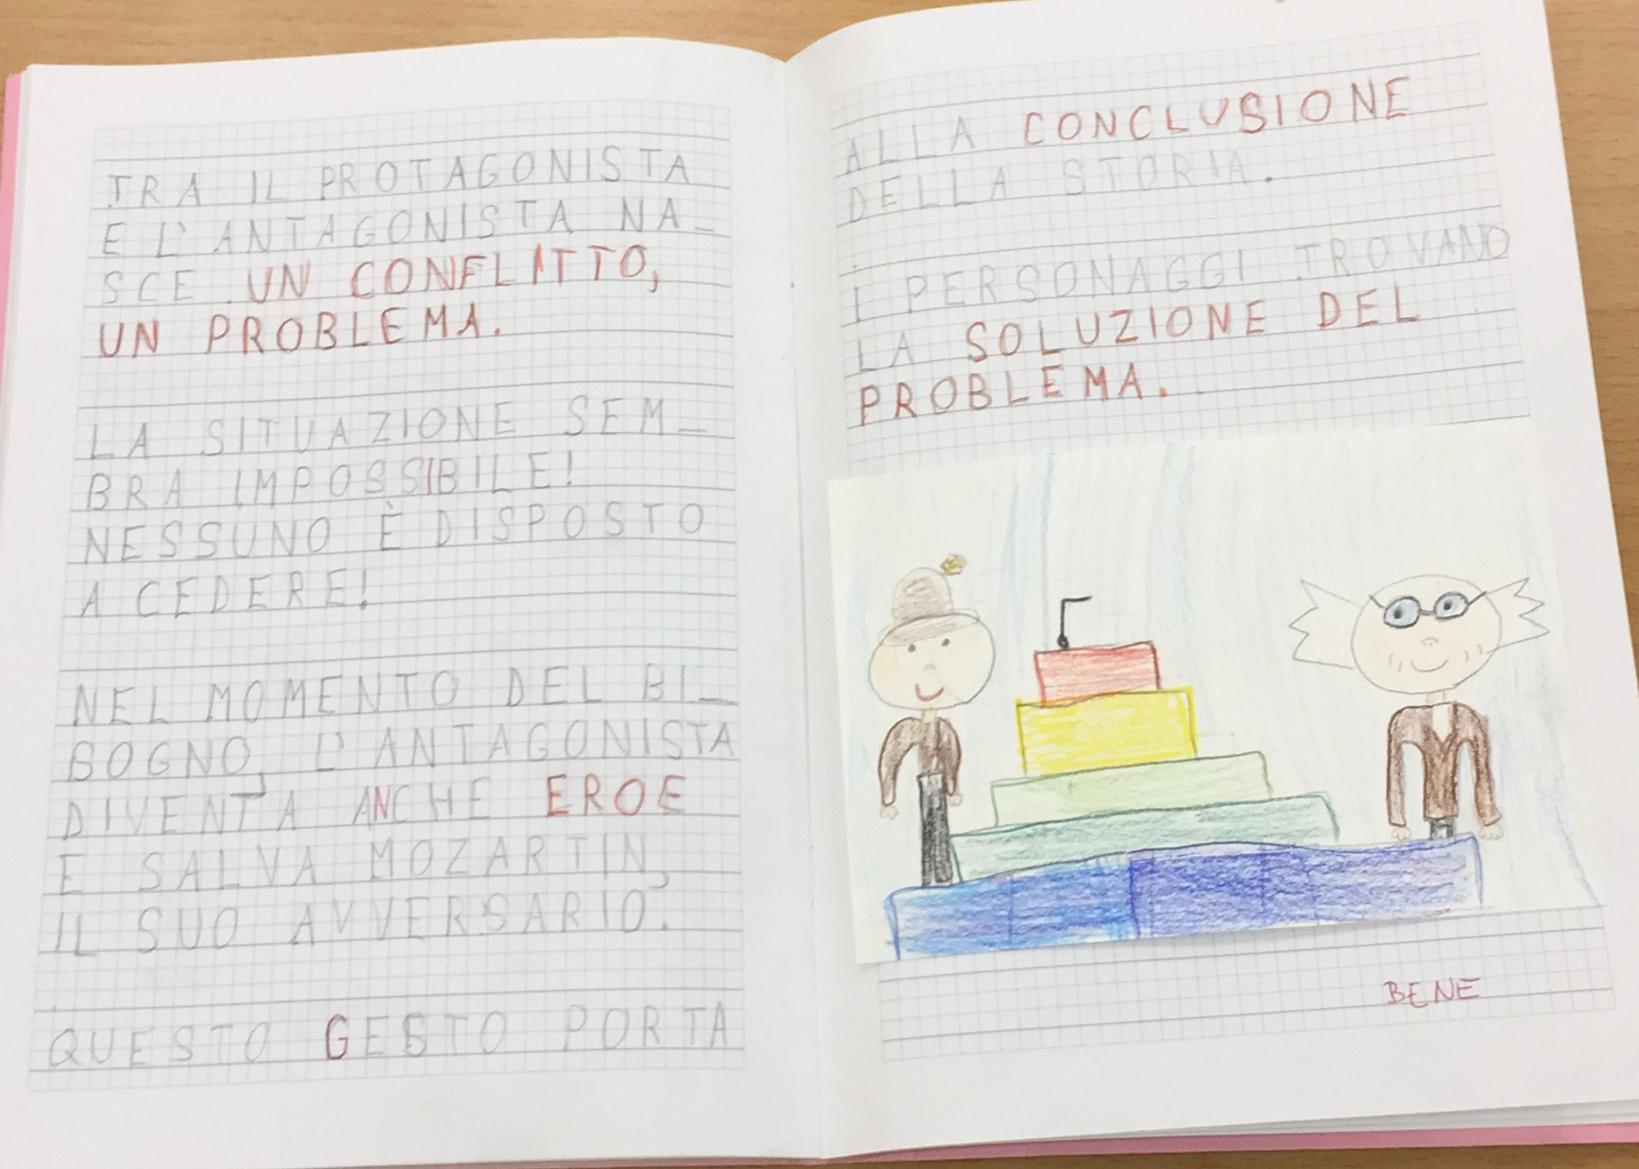 TRA IL PROTAGONISTA
E L'ANTAGONISTA NA_
SCE UN CONFLITTO,
UN PROBLEMA.
LA SITUAZIONE SEM_
BRA IMPOSSIBILE!
NESSUNO È DISPOSTO
A CEDERE!
NEL MOMENTO DEL BI_
SOGNO, L'ANTAGONISTA
DIVENTA ANCHE EROE
E SALVA MOZARTIN,
IL SUO AVVERSARIO.
QUESTO GESTO PORTA
ALLA CONCLUSIONE
DELLA STORIA.
I PERSONAGGI TROVANO
LA SOLUZIONE DEL
PROBLEMA.
BENE